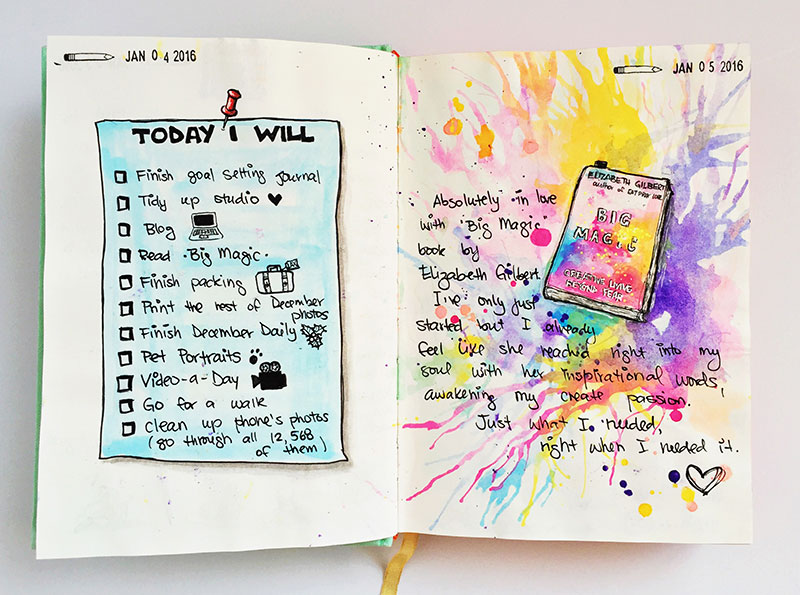 JAN 04 2016
TODAY I WILL
Finish goal setting journal
Tidy up studio
Blog
Read "Big Magic"
Finish packing
Print the rest of December
photos
Finish December Daily
Pet Portraits
Video-a-Day
Go for a walk
Clean up phone's photos
(go through all 12,568
of them)
JAN 05 2016
Absolutely in love
with "Big Magic"
book by
Elizabeth Gilbert.
I've only just
started but I already
feel like she reach'd right into my
soul with her inspirational words,
awakening my create passion.
Just what I needed,
right when I needed it.
ELIZABETH GILBERT
author of EAT PRAY LOVE
BIG
MAGIC
CREATIVE LIVING
BEYOND FEAR